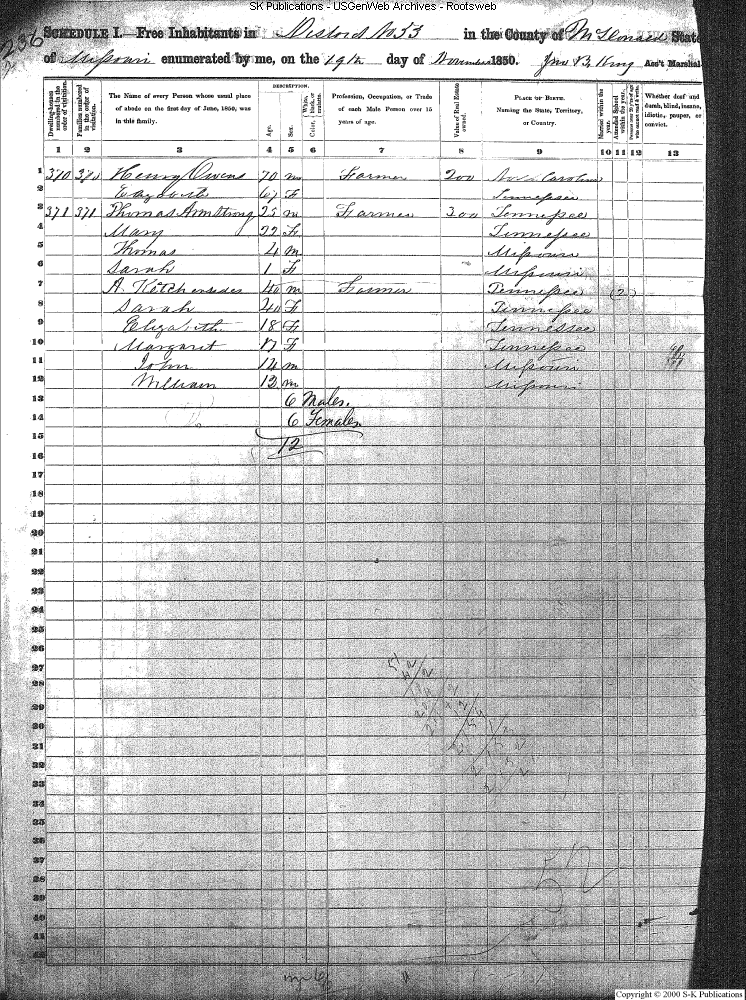 SK Publications - USGenWeb Archives - Rootsweb
236
SCHEDULE I.—Free Inhabitants in District No 53 in the County of McDonald State
of Missouri enumerated by me, on the 19th day of November 1850. Jno B. King Ass't Marshal
Dwelling-houses numbered in the order of visitation.
Families numbered in the order of visitation.
The Name of every Person whose usual place of abode on the first day of June, 1850, was in this family.
DESCRIPTION.
Age.
Sex.
Color, White, black, or mulatto.
Profession, Occupation, or Trade of each Male Person over 15 years of age.
Value of Real Estate owned.
PLACE OF BIRTH. Naming the State, Territory, or Country.
Married within the year.
Attended School within the year.
Persons over 20 y'rs of age who cannot read & write.
Whether deaf and dumb, blind, insane, idiotic, pauper, or convict.
1 2 3 4 5 6 7 8 9 10 11 12 13
1 370 370 Henry Owens 70 m Farmer 200 Carolina
2 67 F Tennessee
3 371 371 Thomas Armstrong 25 m Farmer 300 Tennessee
4 Mary 22 F Tennessee
5 Thomas 4 m Missouri
6 Sarah 1 F Missouri
7 A. Ketchersides 40 m Farmer Tennessee (2)
8 Sarah 40 F Tennessee
9 Elizabeth 18 F Tennessee
10 Margaret 17 F Tennessee
11 John 14 m Missouri
12 William 12 m Missouri
13 6 Males.
14 6 Females
15 12
16
17
18
19
20
21
22
23
24
25
26
27
28
29
30
31
32
33
34
35
36
37
38
39
40
41
42
52
Copyright © 2000 S-K Publications